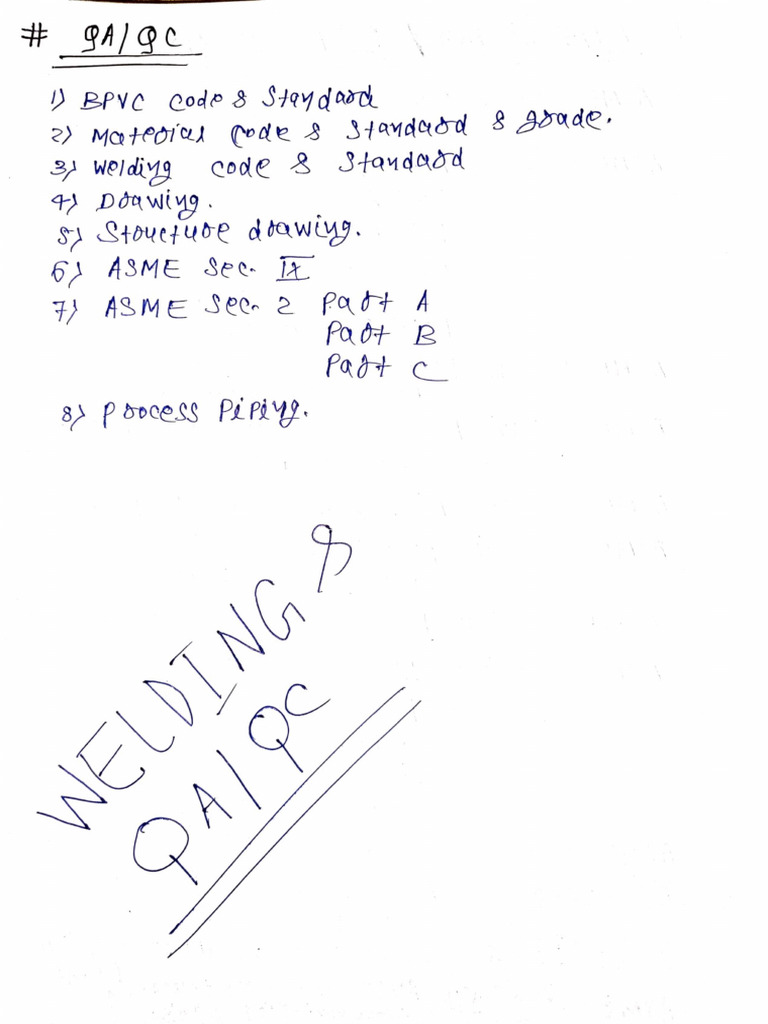 # QA/QC
1) BPVC code & Standard
2) Material code & Standard & grade.
3) Welding code & Standard
4) Drawing.
5) Structure drawing.
6) ASME Sec. IX
7) ASME Sec. 2 Part A
Part B
Part C
8) Process Piping.
WELDING &
QA/QC